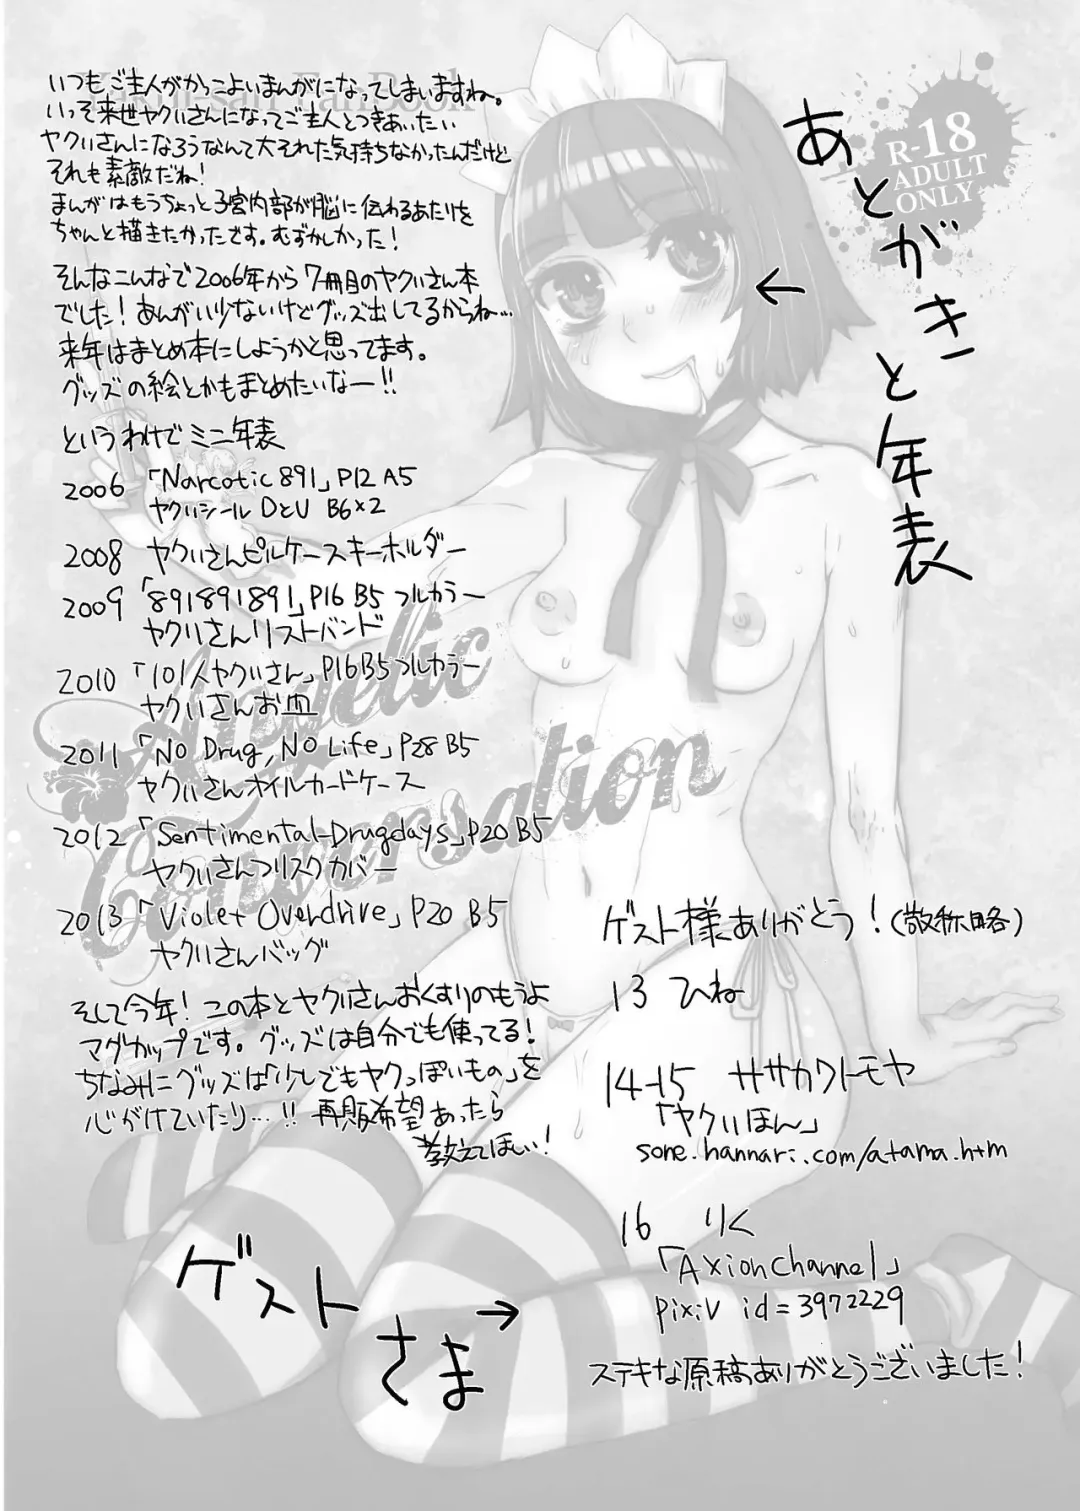 あとがきと年表
R-18
ADULT
ONLY
いつもご主人がかっこよいまんがになってしまいますね。
いっそ来世ヤクいさんになってご主人とつきあいたい
ヤクいさんになろうなんて大それた気持ちなかったんだけど
それも素敵だね!
まんがはもうちょっと子宮内部が脳に伝わるあたりを
ちゃんと描きたかったです。むずかしかった!
そんなこんなで2006年から7冊目のヤクいさん本
でした!あんがい少ないけどグッズ出してるからね…
来年はまとめ本にしようかと思ってます。
グッズの絵とかもまとめたいなー!!
というわけでミニ年表
2006 「Narcotic 891」P12 A5
ヤクいシール DとU B6×2
2008 ヤクいさんピルケースキーホルダー
2009 「891891891」P16 B5 フルカラー
ヤクいさんリストバンド
2010 「101人ヤクいさん」P16B5フルカラー
ヤクいさんお皿
2011 「No Drug, No Life」P28 B5
ヤクいさんオイルカードケース
2012 「Sentimental-Drugdays」P20 B5
ヤクいさんフリスクカバー
2013 「Violet Overdrive」P20 B5
ヤクいさんバッグ
そして今年!この本とヤクいさんおくすりのもうよ
マグカップです。グッズは自分でも使ってる!
ちなみにグッズは「少しでもヤクっぽいもの」を
心がけていたり…!!再販希望あったら
教えてほしい!
Angelic
Conversation
ゲスト様ありがとう!(敬称略)
13 ひね
14-15 ササカワトモヤ
「ヤクいほん」
sone.hannari.com/atama.htm
16 りく
「AxionChannel」
pixiv id=3972229
ステキな原稿ありがとうございました!
ゲスト
さま →